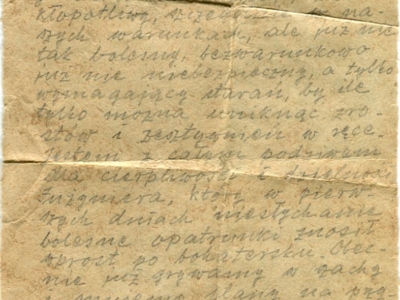 kłopotliwy, szczególnie w na-
szych warunkach, ale już nie
tak bolesny, bezwarunkowo
już nie niebezpieczny, a tylko
wymagający starań, by ile
tylko można uniknąć zro-
stów i zesztywnień w ręce.
Jestem z całym podziwem
dla cierpliwości i dzielności
Inżyniera, który w pierw-
szych dniach niesłychanie
bolesne opatrunki znosił
wprost po bohatersku. Obec-
nie już grywamy w szachy
i snujemy plany na przy-